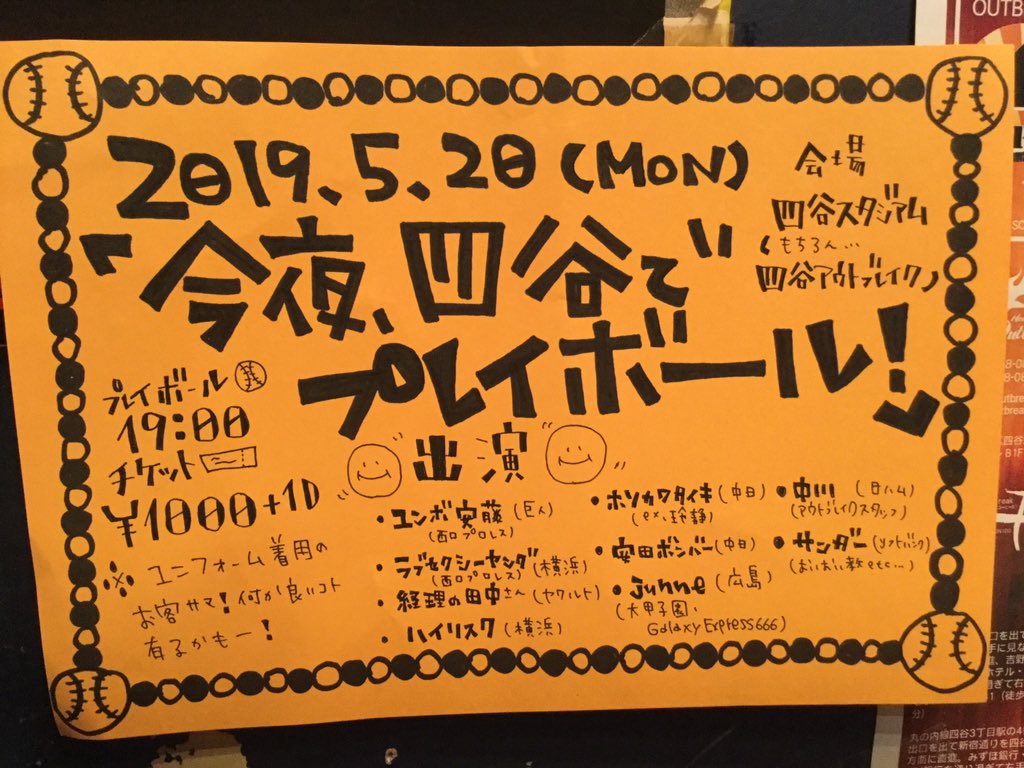 2019.5.20(MON)
「"今夜、四谷で"
プレイボール!」
会場
四谷スタジアム
(もちろん…
四谷アウトブレイク)
プレイボール
19:00
チケット
¥1000+1D
※ユニフォーム着用の
お客サマ!何か良いコト
有るかもー!
出演
・ユンボ安藤(巨人)
(西口プロレス)
・ラブセクシーヤシダ(横浜)
(西口プロレス)
・経理の田中さん(ヤクルト)
・ハイリスク(横浜)
・ホソカワタイキ(中日)
(ex、玲静)
・安田ボンバー(中日)
・junne(広島)
(大甲子園、
Galaxy Express666)
・中川(日ハム)
(アウトブレイクスタッフ)
・サンダー(ソフトバンク)
(おいおい教etc…)
OUTB